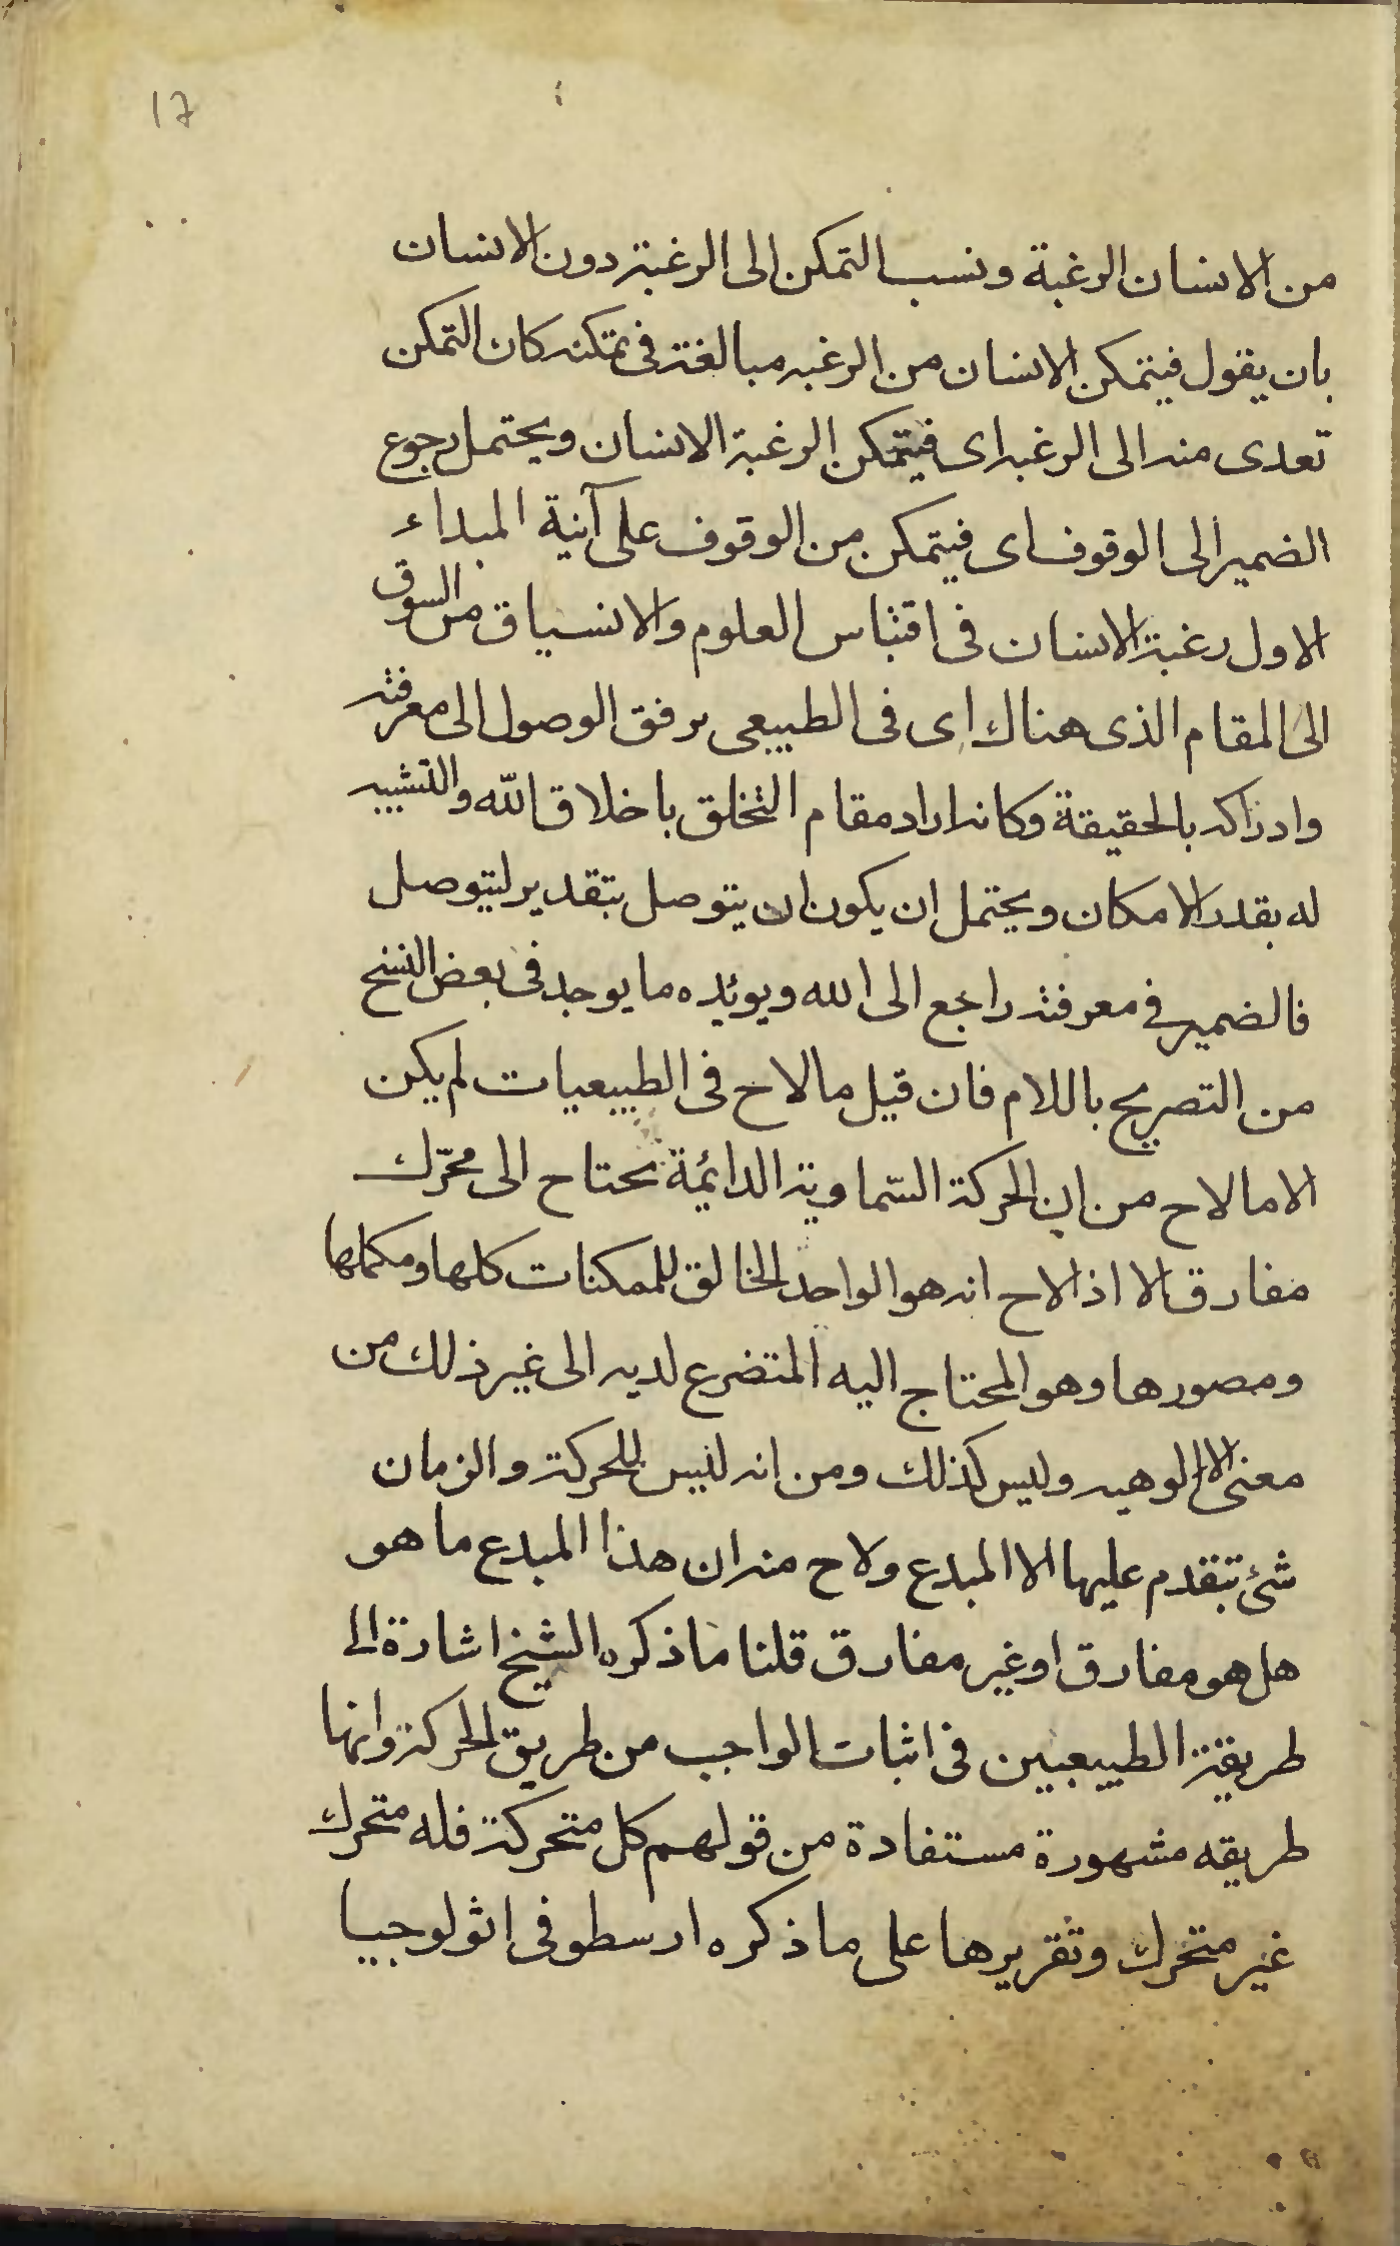 17
من الانسان الرغبة ونسب التمكن الى الرغبة دون الانسان
بان يقول فيتمكن الانسان من الرغبه مبالغة فى تمكنه كان التمكن
تعدى منه الى الرغبه اى فيتمكن الرغبة الانسان ويحتمل رجوع
الضمير الى الوقوف اى فيتمكن من الوقوف على آنية المبداء
الاول رغبة الانسان فى اقتباس العلوم والانسياق من السوق
الى المقام الذى هناك اى فى الطبيعى برفق الوصول الى معرفته
وادراكه بالحقيقة وكانه اراد مقام التخلق باخلاق الله والتشبيه
له بقدر الامكان ويحتمل ان يكون ان يتوصل بتقدير ليتوصل
فالضمير في معرفته راجع الى الله ويوئده ما يوجد فى بعض النسخ
من التصريح باللام فان قيل ما لاح فى الطبيعيات لم يكن
الا ما لاح من ان الحركة السّماوية الدائمة تحتاج الى محرّك
مفارق الا اذ الاح انه هو الواحد الخالق للممكنات كلها ومكملها
ومصورها وهو المحتاج اليه المتضرع لديه الى غير ذلك من
معنى الالوهيه وليس كذلك ومن انه ليس للحركة والزمان
شئ تتقدم عليها الا المبدع ولاح منه ان هذا المبدع ما هو
هل هو مفارق او غير مفارق قلنا ما ذكره الشيخ اشارة الى
طريقة الطبيعيين فى اثبات الواجب من طريق الحركة وانها
طريقه مشهورة مستفادة من قولهم كل متحركة فله متحرك
غير متحرك وتقريرها على ما ذكره ارسطو فى اثولوجيا